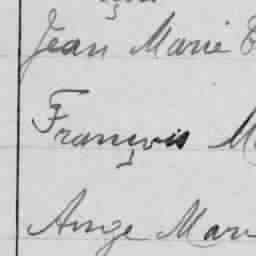 Jean Marie
François
Ange Mari